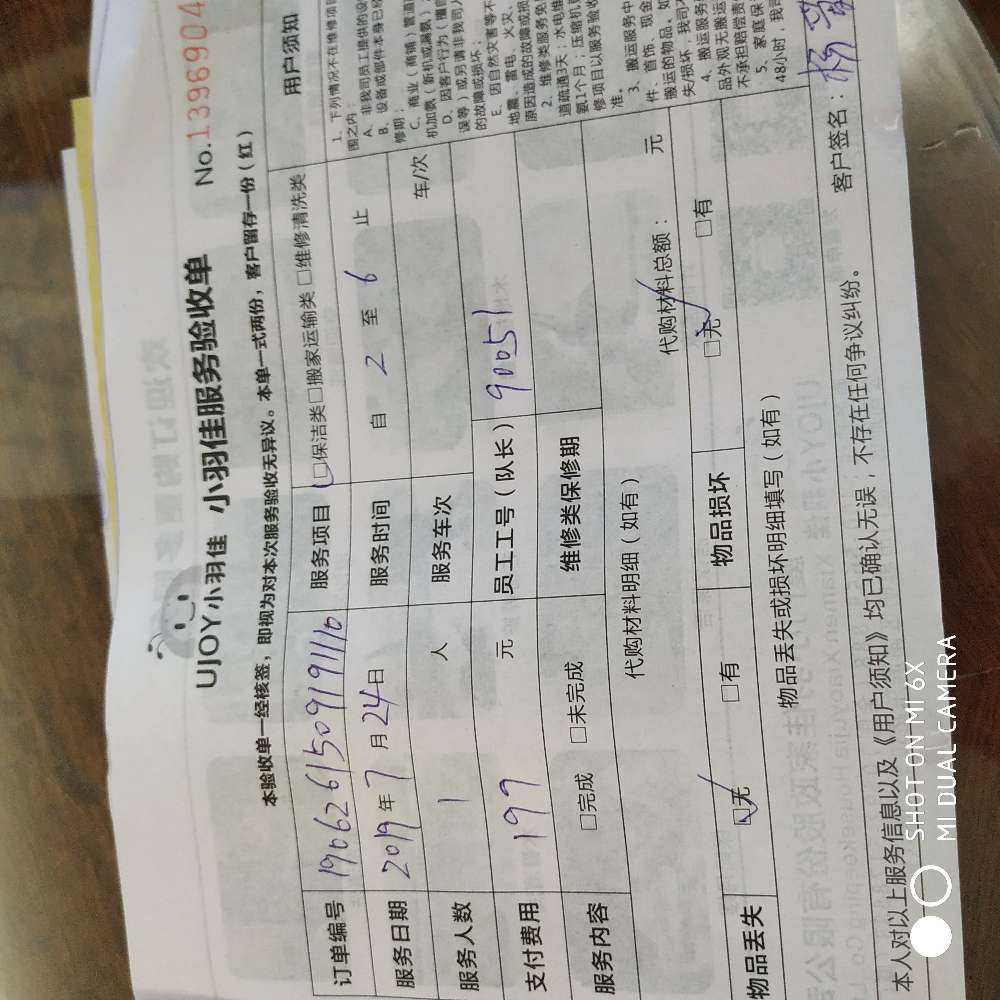 UJOY小羽佳 小羽佳服务验收单 No.1396904
本验收单一经核签，即视为对本次服务验收无异议。本单一式两份，客户留存一份（红）
订单编号 19062615091911110 服务项目 □保洁类□搬家运输类 □维修清洗类
服务日期 2019年7月24日 服务时间 自 2 至 6 止
服务人数 1 人 服务车次 车/次
支付费用 199 元 员工工号（队长） 90051
服务内容 □完成 □未完成 维修类保修期
代购材料明细（如有） 代购材料总额： 元
物品丢失 □无 □有 物品损坏 □无 □有
物品丢失或损坏明细填写（如有）
用户须知
1、下列情况不在维修项
围之内：
A、非我司员工提供的设
B、设备或部件本身已
修期；
C、商业（商铺）管道
机加氨（新机或漏氨，
D、因客户行为（擅自
误等）或另请非我司人
的故障或损坏；
E、因自然灾害等不
地震、雷电、火灾、
原因造成的故障或损
2、维修类服务免
道疏通3天；水电维
氨1个月；压缩机
修项目以服务验收
准。
3、搬运服务中
件、首饰、现金
搬运的物品，如
失/损坏，我司不
4、搬运服务
品外观无搬运
不承担赔偿责
5、家庭保
48小时，我司
本人对以上服务信息以及《用户须知》均已确认无误，不存在任何争议纠纷。 客户签名：
SHOT ON MI 6X
MI DUAL CAMERA